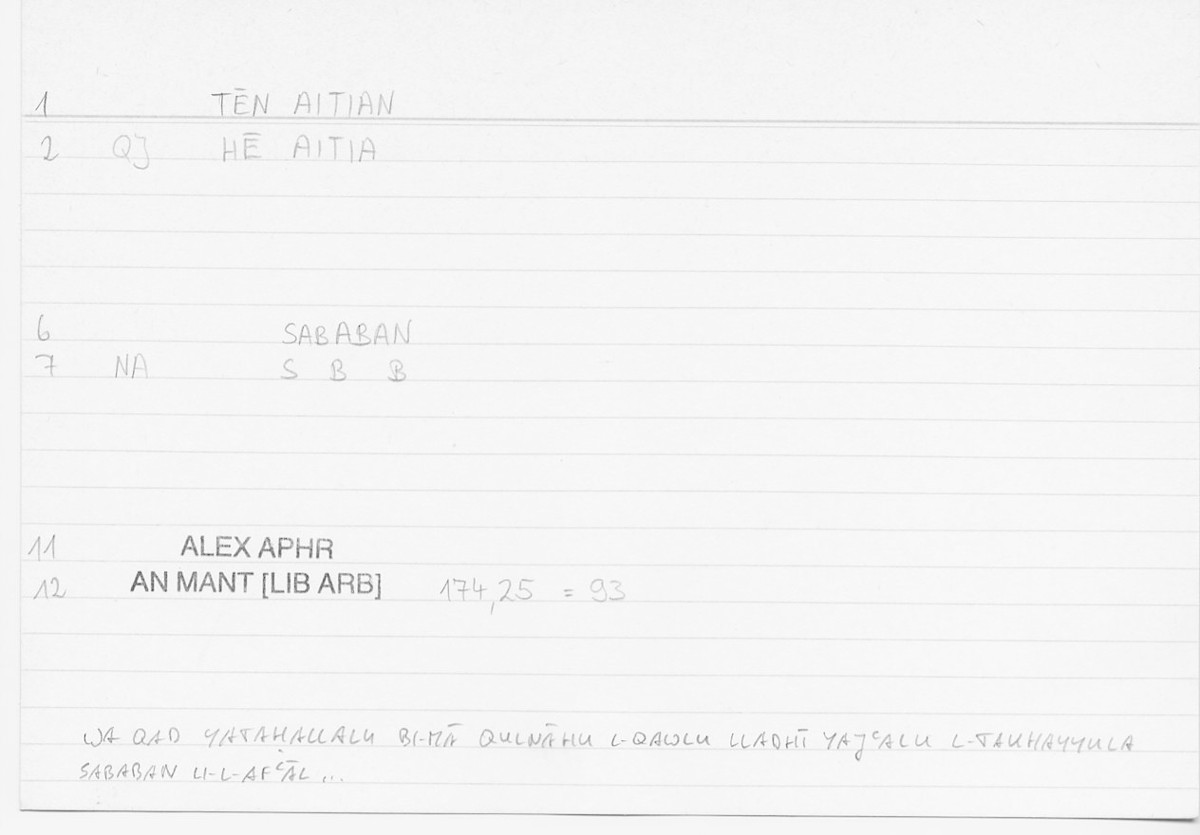 1 TĒN AITIAN
2 QJ HĒ AITIA
6 SABABAN
7 NA S B B
11 ALEX APHR
12 AN MANT [LIB ARB] 174,25 = 93
WA QAD YATAHALLALU BI-MĀ QULNĀHU L-QAWLU LLADHĪ YAJʿALU L-TAKHAYYULA
SABABAN LI-L-AFʿĀL ...